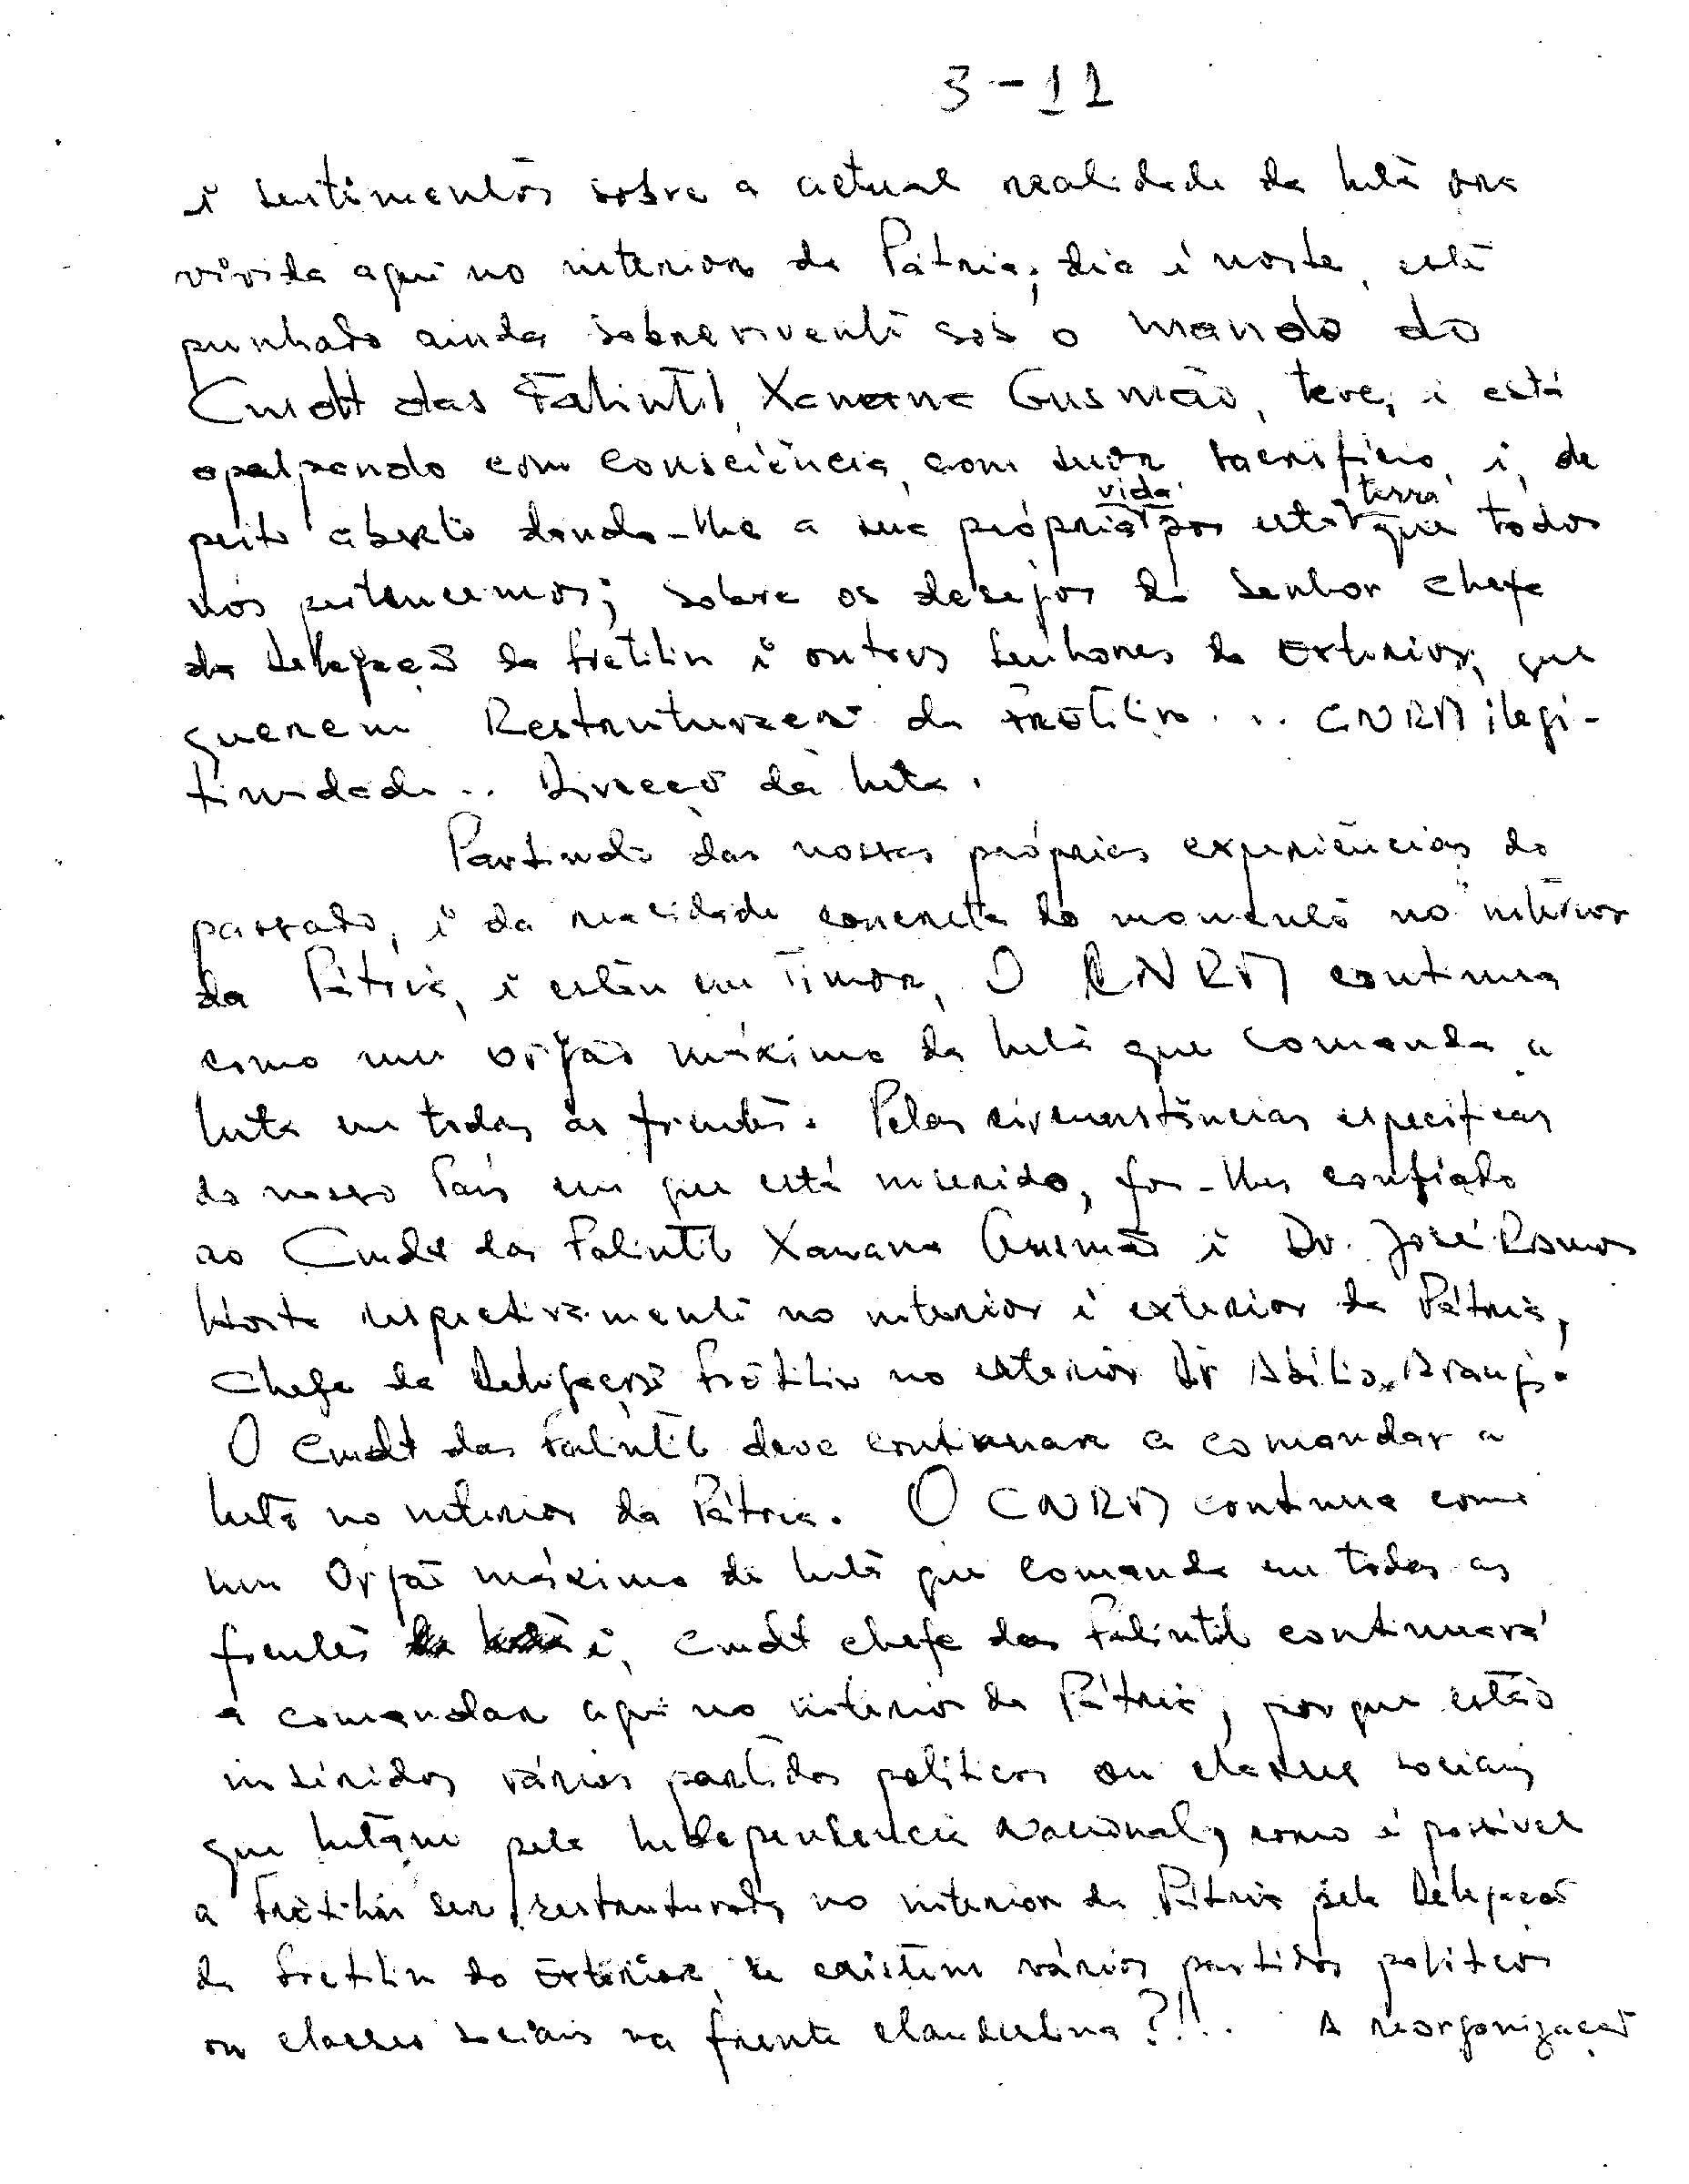 3-11
e sentimentos sobre a actual realidade da luta ora
vivida aqui no interior da Pátria, dia e noite, este
punhado ainda sobrevivente sob o mando do
Cmdt das Falintil, Xanana Gusmão, teve, e está
apalpando com consciência, com suor, sacrifício, e, de
peito aberto dando-lhe a sua própria vida por esta terra que todos
nós pertencemos; sobre os desejos do Senhor Chefe
da Delegação da Fretilin e outros Senhores do Exterior, que
querem Restruturação da Fretilin... CNRM ilegi-
timidade... Direcção da luta.
Partindo das nossas próprias experiências do
passado, e da realidade concreta do momento no interior
da Pátria, e estão em Timor, O CNRM continua
como um orgão máximo da luta que comanda a
luta em todas as frentes. Pelas circunstâncias especificas
do nosso País em que está inserido, foi-lhes confiado
ao Cmdt das Falintil Xanana Gusmão e Dr. José Ramos
Horta respectivamente no interior e exterior da Pátria,
Chefe da Delegação Fretilin no exterior Dr Abílio Araujo.
O Cmdt das Falintil deve continuar a comandar a
luta no interior da Pátria. O CNRM continua como
um Orgão máximo da luta que comanda em todas as
frentes e, Cmdt chefe das Falintil continuará
a comandar aqui no interior da Pátria, porque estão
inseridos vários partidos politicos ou classes sociais
que lutam pela Independência Nacional, como é possivel
a Fretilin ser restruturada no interior da Pátria pela Delegação
da Fretilin do Exterior, se existem vários partidos politicos
ou classes sociais na frente clandestina?!!.. A reorganização